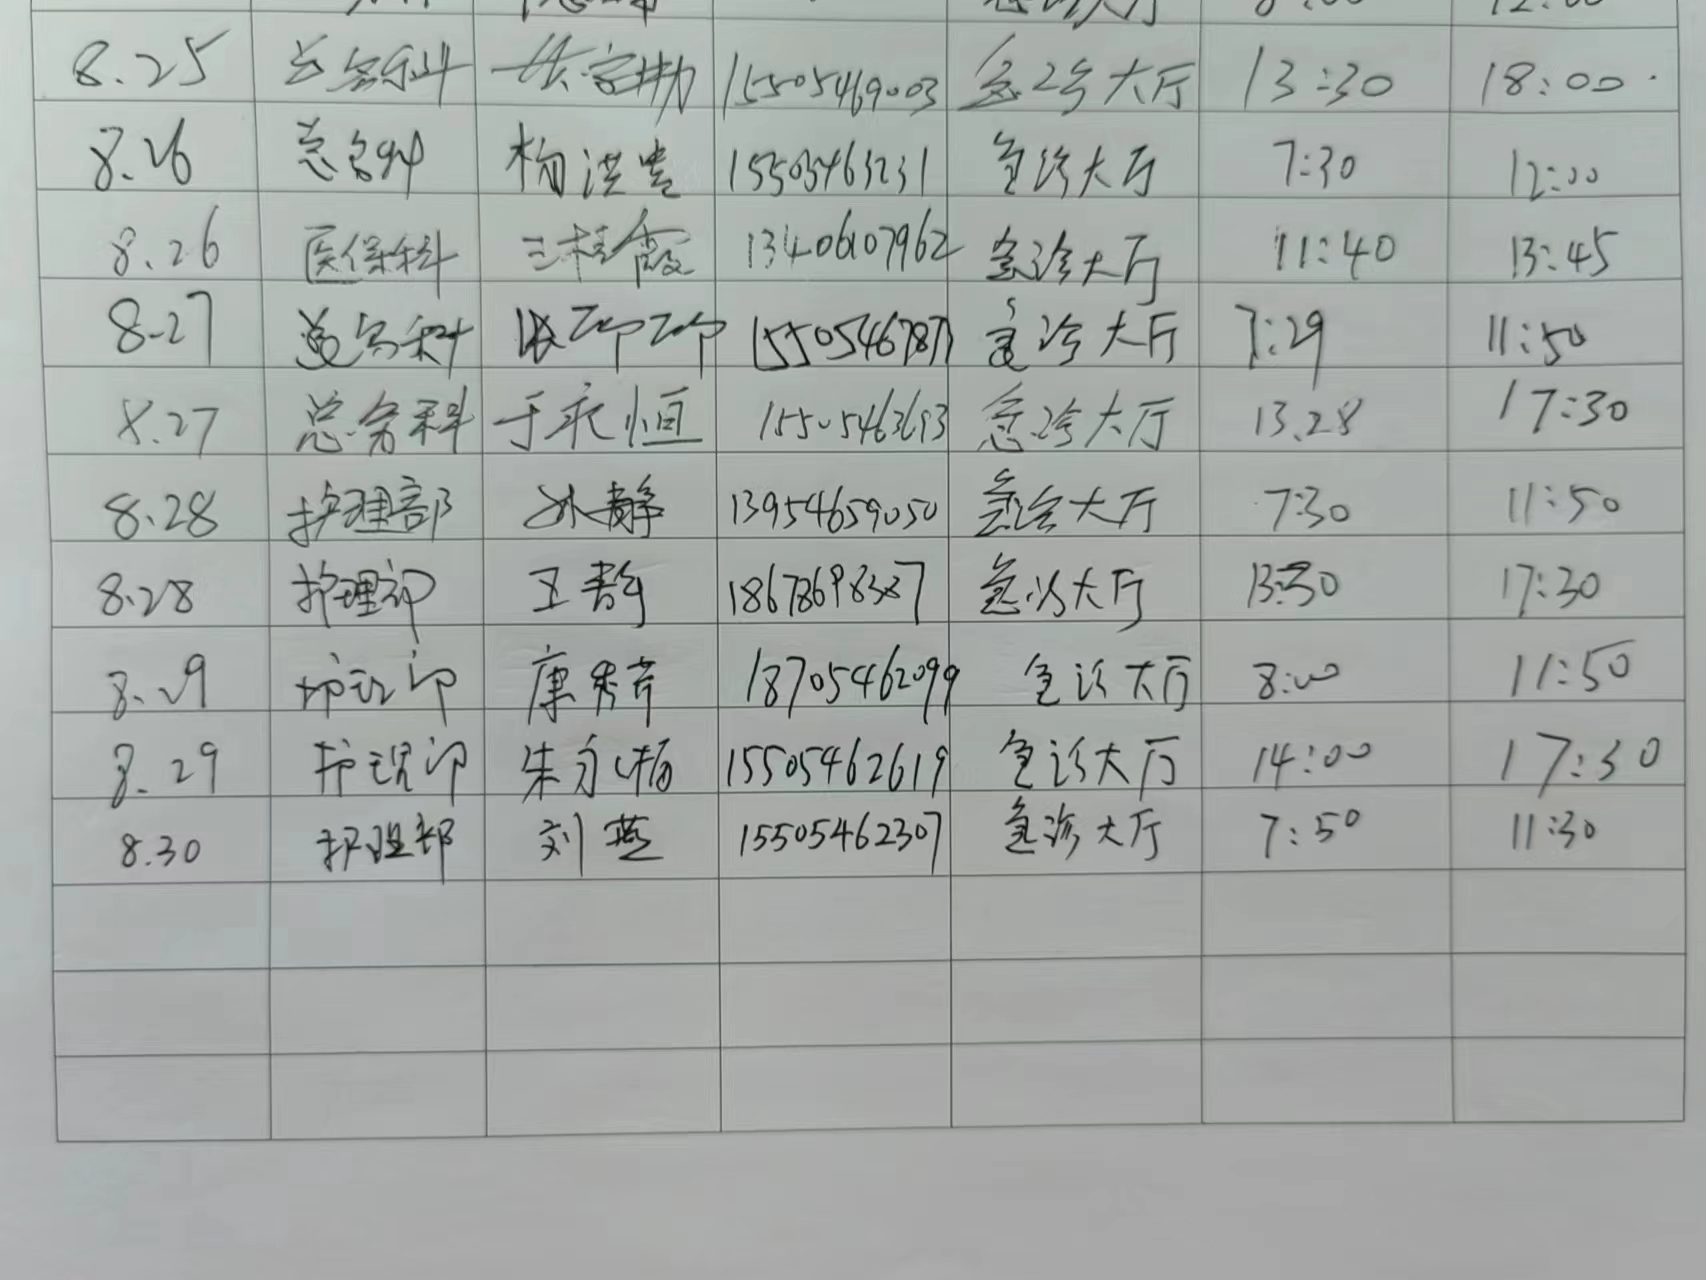 急诊大厅 8:00 12:00
8.25 总务科 15505469003 急诊大厅 13:30 18:00
8.26 总务科 杨洪 15505463231 急诊大厅 7:30 12:00
8.26 医保科 王桂霞 13406107962 急诊大厅 11:40 13:45
8.27 总务科 急诊大厅 7:29 11:50
8.27 总务科 于永恒 15505463693 急诊大厅 13.28 17:30
8.28 护理部 孙静 13954659050 急诊大厅 7:30 11:50
8.28 护理部 王静 急诊大厅 13:30 17:30
8.29 护理部 康秀芹 18705462099 急诊大厅 8:00 11:50
8.29 护理部 朱永梅 15505462619 急诊大厅 14:00 17:30
8.30 护理部 刘燕 15505462307 急诊大厅 7:50 11:30